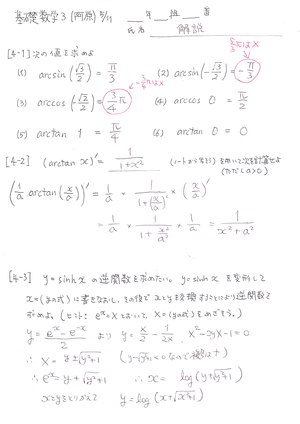 基礎数学3 (河原) 5/11 __年__組__番
氏名 解説
[4-1] 次の値を求めよ
5/3πはX
(1) arcsin(√3/2) = π/3 (2) arcsin(-√3/2) = -π/3
-3/4πはX
(3) arccos(√2/2) = 3/4π (4) arccos 0 = π/2
(5) arctan 1 = π/4 (6) arctan 0 = 0
[4-2] (arctan x)' = 1/(1+x²) を用いて次を計算せよ
(ただし a>0)
(1/a arctan(x/a))' = 1/a × 1/(1+(x/a)²) × (x/a)'
= 1/a × 1/(1+x²/a²) × 1/a = 1/(x²+a²)
[4-3] y=sinhx の逆関数を求めたい。y=sinhx を変形して
x=(yの式) に書きなおし、その後で xとyを交換することにより逆関数を
求めよ。(ヒント: eˣ=X とおいて、X=(yの式) をめざそう。)
y = (eˣ-e⁻ˣ)/2 より y = X/2 - 1/2X, X²-2yX-1=0
∴ X = y±√(y²+1) (y-√(y²+1)<0 なので
∴ eˣ = y+√(y²+1) ∴ x = log(y+√(y²+1))
xとyをとりかえて y = log(x+√(x²+1))